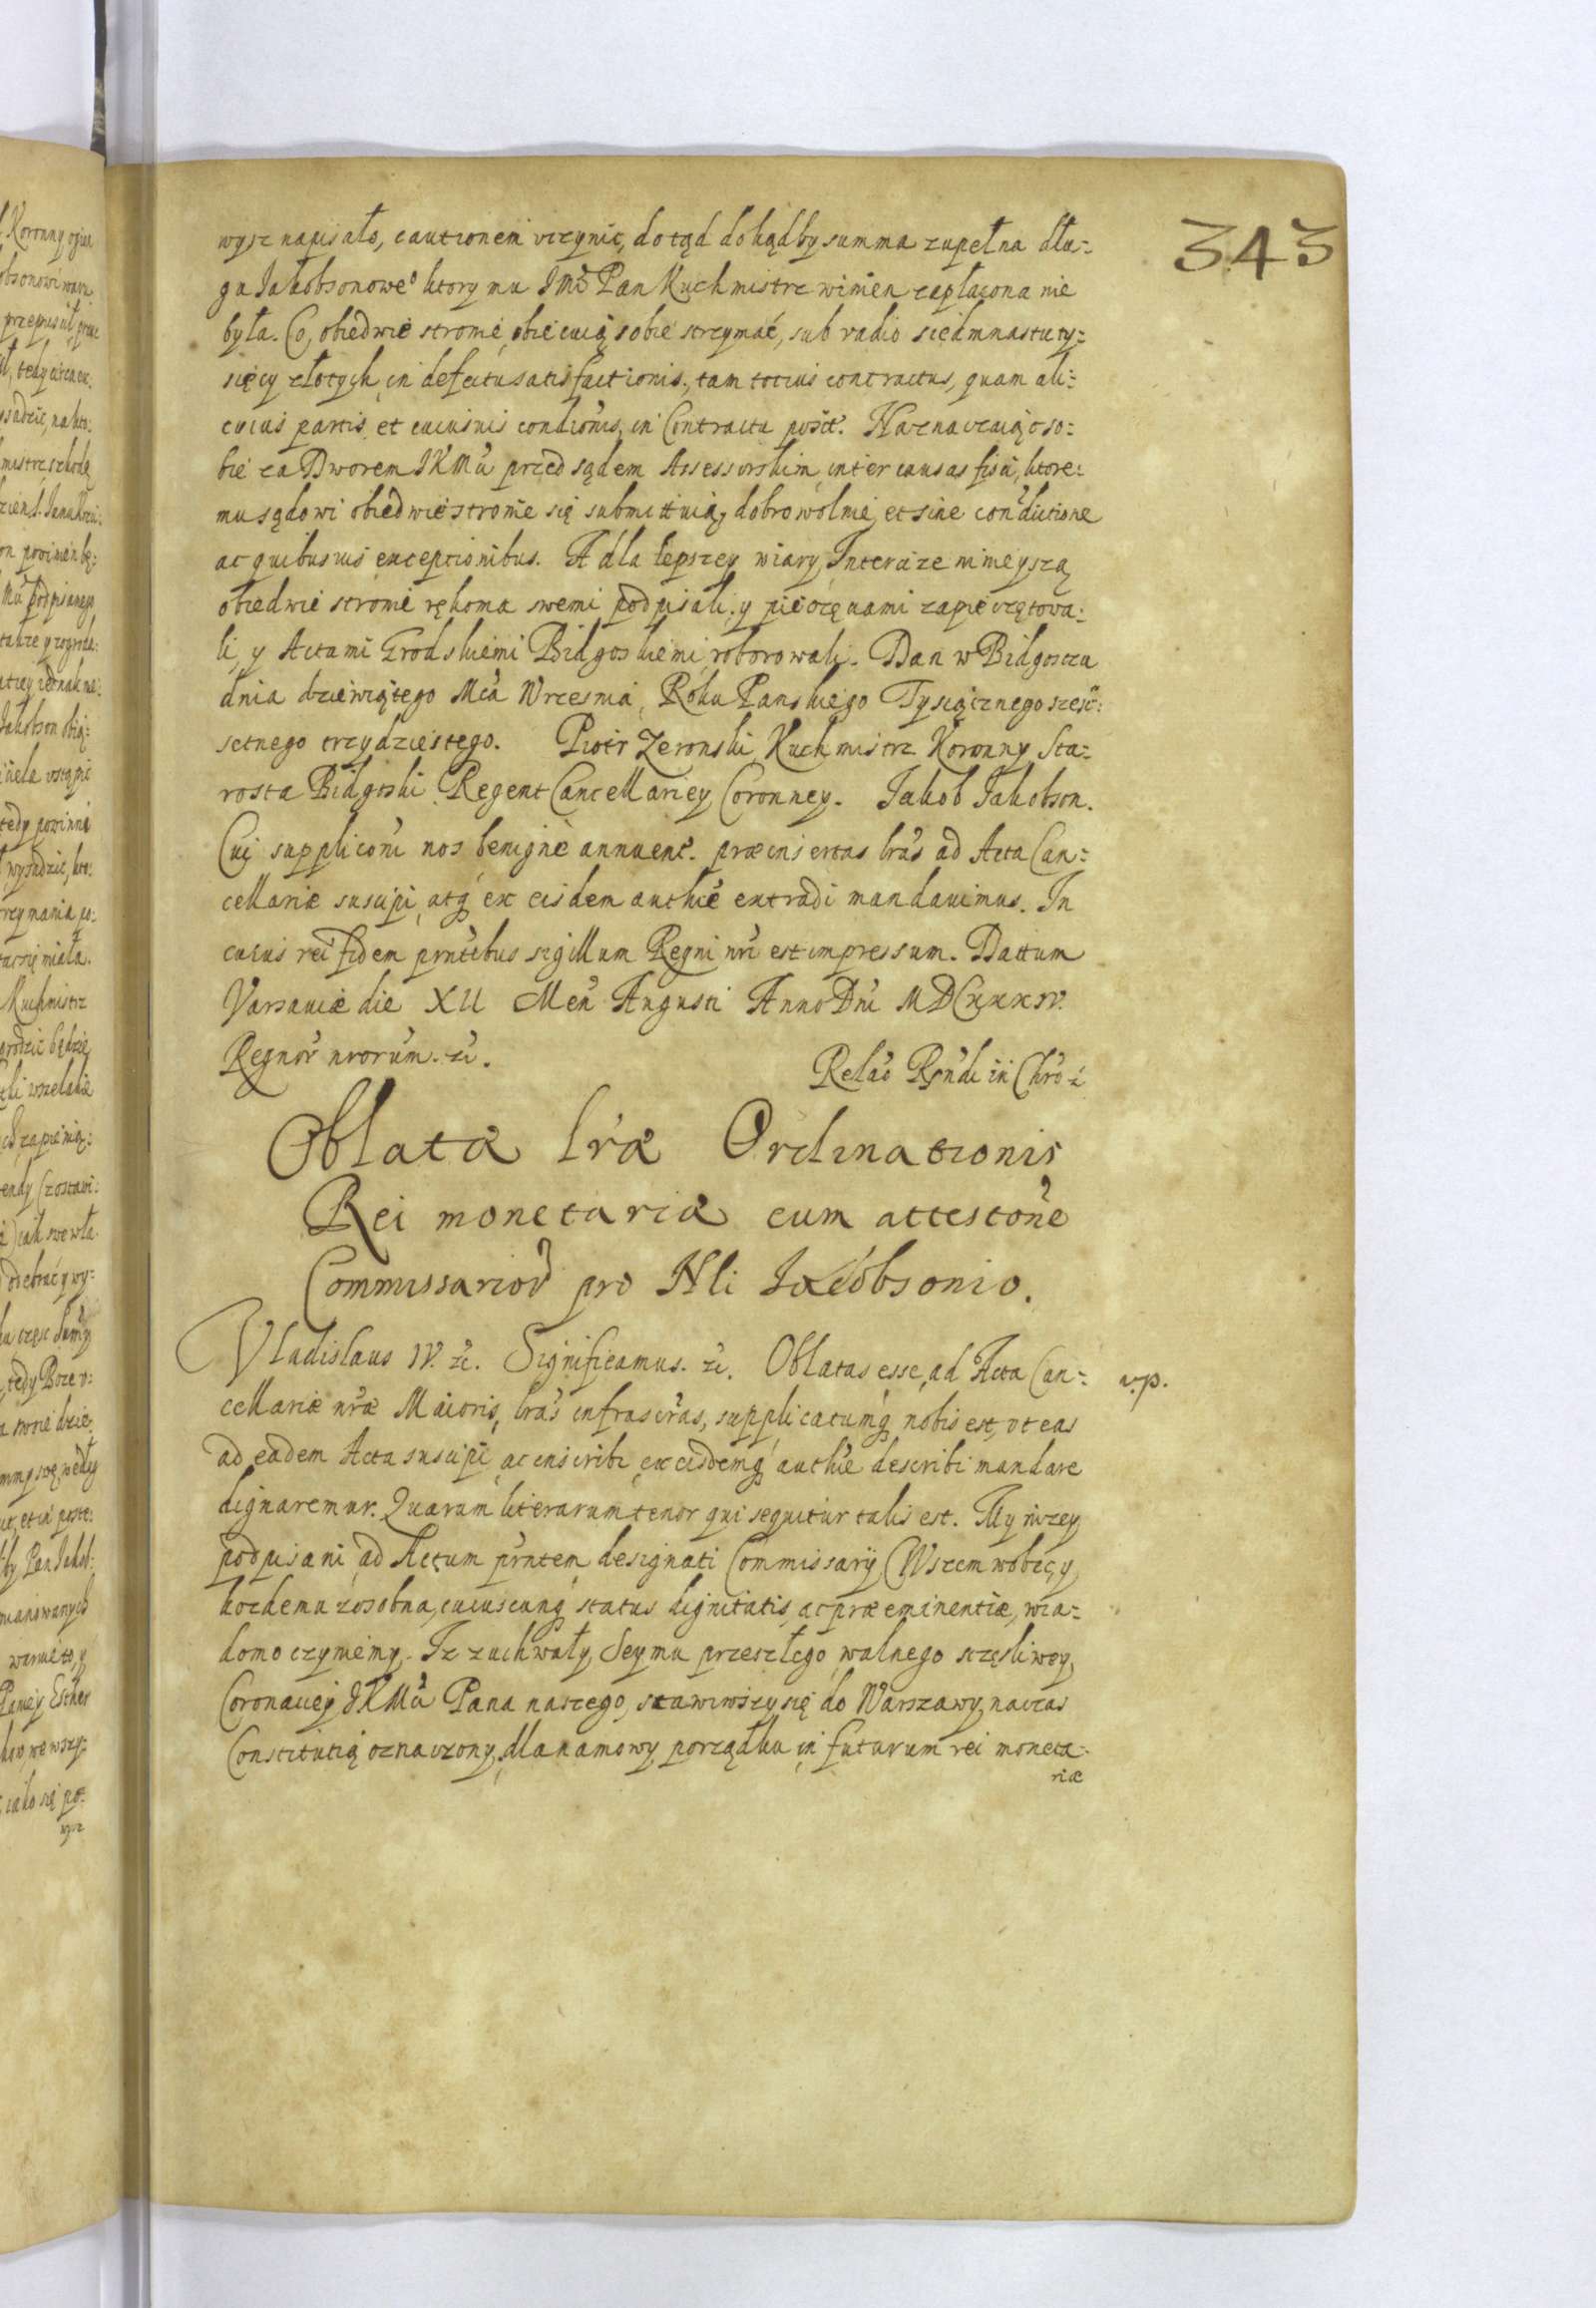 343
wysz napisało, cautionem vczynic, dotąd dokądby summa zupełna dłu-
gu Jakobsonoweo ktory mu JMć Pan Kuchmistrz winien zapłacona nie
była. Co, obiedwie stronie, obiecuią sobie strzymać, sub vadio siedmnastu ty-
sięcy złotych, in defectu satisfactionis, tam totius contractus, quam ali-
cuius partis, et cuiusuis condionis, in Contractu posit. Naznaczaiąc so-
bie za Dworem JKMci przed sądem Assessorskim, inter causas fisci, ktore-
mu sądowi obiedwie stronie się submittuią, dobrowolnie, et sine conductione
ac quibusuis exceptionibus. A dla lepszey wiary, Intercize ninieyszą
obiedwie stronie rękoma swemi podpisali, y pieczęciami zapieczętowa-
li, y Actami Grodskiemi Bidgoskiemi roborowali. Dan w Bidgosczu
dnia dziewiątego Mca Wrzesnia, Roku Panskiego Tysiącznego szesc-
setnego trzydziestego. Piotr Zeronski Kuchmistrz Koronny Sta-
rosta Bidgoski Regent Cancellariey Coronney. Jakob Jakobson.
Cui suppliconi nos benigne annuent. præinsertas lras ad Acta Can-
cellariæ suscipi, atq ex eisdem authce extradi mandauimus. In
cuius rei fidem prntibus sigillum Regni nri est impressum. Dattum
Varsauiæ die XII Men Augusti Anno Dni MDCXXXIV.
Regnor nrorum. zc.
Relao Rsndi in Chro z
Oblatæ lræ Ordinationis
Rei monetariæ cum attestone
Commissarior pro Nli Jacobsonio.
Vladislaus IV. zc. Significamus. zc. Oblatas esse, ad Acta Can-
v.p.
cellariæ nræ Maioris, lras infrascras, supplicatumq nobis est, vt eas
ad eadem Acta suscipi, ac inscribi, ex eisdemq authce describi mandare
dignaremur. Quarum literarum tenor qui sequitur talis est. My niżey
podpisani ad Actum prntem designati Commissarij, Wszem wobec, y
kozdemu zosobna, cuiuscunq status dignitatis, ac præeminentiæ, wia-
domo czyniemy. Iz z uchwały, Seymu przeszłego walnego sczęsliwey
Coronaciey JKMci Pana naszego, stawiwszy się do Warszawy, naczas
Constitutią oznaczony, dla namowy porządku in futurum rei moneta-
riæ